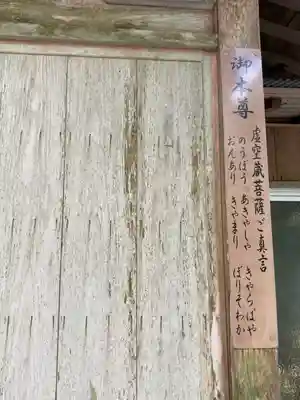 御本尊
虚空蔵菩薩ご真言
のうぼう あきやしや きやらばや
おんあり きやまり ぼりそわか